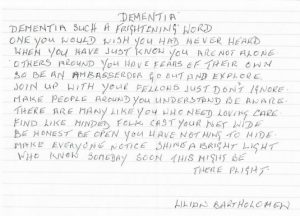 DEMENTIA
DEMENTIA SUCH A FRIGHTENING WORD
ONE YOU WOULD WISH YOU HAD NEVER HEARD
WHEN YOU HAVE JUST KNOW YOU ARE NOT ALONE
OTHERS AROUND YOU HAVE FEARS OF THEIR OWN
SO BE AN AMBASSERDOR GO OUT AND EXPLORE
JOIN UP WITH YOUR FELLONS JUST DON'T IGNORE.
MAKE PEOPLE AROUND YOU UNDERSTAND BE AWARE.
THERE ARE MANY LIKE YOU WHO NEED LOVING CARE
FIND LIKE MINDED FOLK CAST YOUR NET WIDE
BE HONEST BE OPEN YOU HAVE NOTHING TO HIDE.
MAKE EVERYONE NOTICE SHINE A BRIGHT LIGHT
WHO KNOW SOMEDAY SOON THIS MIGHT BE
THERE PLIGHT.
LILIAN BARTHOLOMEW